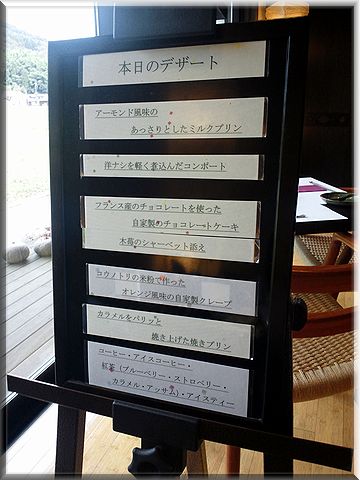 本日のデザート
アーモンド風味の
あっさりとしたミルクプリン
洋ナシを軽く煮込んだコンポート
フランス産のチョコレートを使った
自家製のチョコレートケーキ
木苺のシャーベット添え
コウノトリの米粉で作った
オレンジ風味の自家製クレープ
カラメルをパリッと
焼き上げた焼きプリン
コーヒー・アイスコーヒー・
紅茶（ブルーベリー・ストロベリー・
カラメル・アッサム）・アイスティー